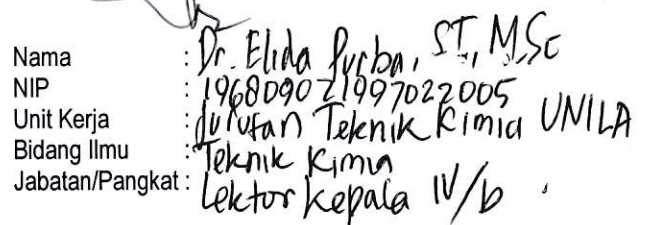 Nama : Dr. Elida Purba, ST, M.Sc
NIP : 196809021997022005
Unit Kerja : Jurusan Teknik Kimia UNILA
Bidang Ilmu : Teknik Kimia
Jabatan/Pangkat : Lektor Kepala IV/b